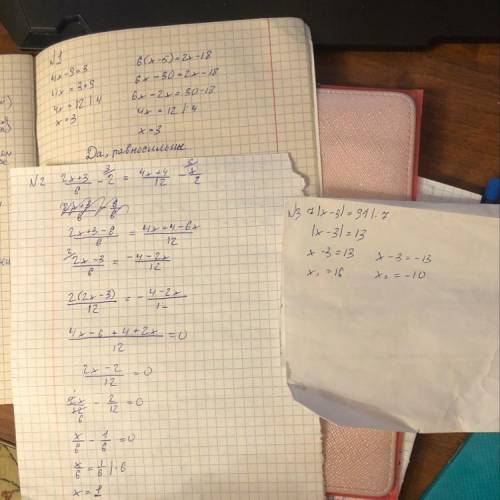 №1
4x-9=3
4x=3+9
4x=12 | 4
x=3
6(x-5)=2x-18
6x-30=2x-18
6x-2x=30-18
4x=12 | 4
x=3
Да, равносильны
№2 (2x+3)/6 - 2 = (4x+4)/12 - x/2
(2x+3-6)/6 = (4x-4-6x)/12
(2x-3)/6 = (-4-2x)/12
2(2x-3)/12 = -(4-2x)/12
(4x-6+4+2x)/12 = 0
(2x-2)/12 = 0
2x/12 - 2/12 = 0
x/6 - 1/6 = 0
x/6 = 1/6 | ·6
x = 1
№3 7|x-3|=91 |·7
|x-3|=13
x-3=13 x-3=-13
x₁=16 x₂=-10